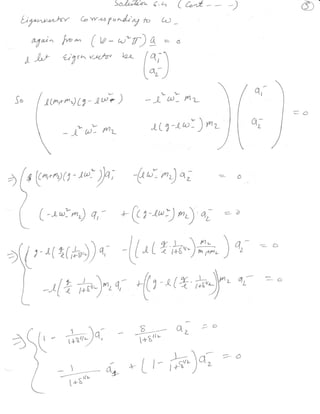 Solution 6.4 (Cont - - - )
⑤
Eigenvector corresponding to ω₋
again from (V - ω²T) a = 0
& let eigenvector be (a₁⁻
a₂⁻)
So ( l(m₁+m₂)(g - lω₋²)   - l² ω₋² m₂ ) ( a₁⁻ )
( - l² ω₋² m₂   l(g - lω₋²) m₂ ) ( a₂⁻ ) = 0
⇒ { ((m₁+m₂)(g - lω₋²)) a₁⁻ - (lω₋² m₂) a₂⁻ = 0
(- lω₋² m₂) a₁⁻ + ((g - lω₋²) m₂) a₂⁻ = 0
⇒ { (g - l(g/l (1/(1+δ^1/2)))) a₁⁻ - ((l(g/l · 1/(1+δ^1/2)) m₂/(m₁+m₂)) a₂⁻ = 0
- l(g/l · 1/(1+δ^1/2)) m₂ a₁⁻ + ((g - l(g/l · 1/(1+δ^1/2))) m₂ a₂⁻ = 0
⇒ { (1 - 1/(1+δ^1/2)) a₁⁻ - δ/(1+δ^1/2) a₂⁻ = 0
- 1/(1+δ^1/2) a₁⁻ + (1 - 1/(1+δ^1/2)) a₂⁻ = 0